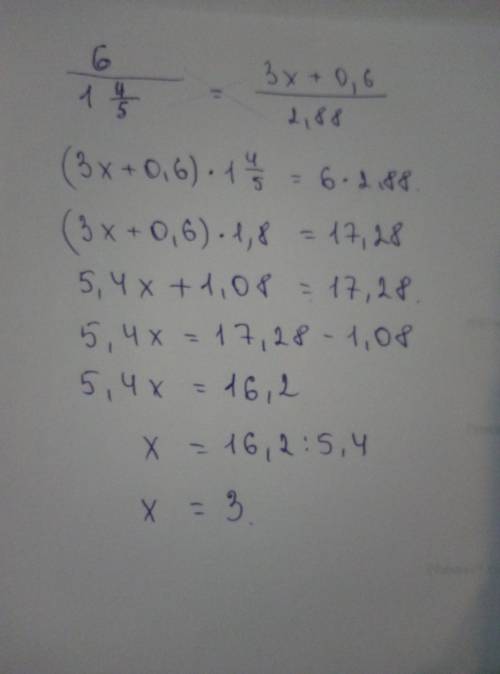 6 / 1 4/5 = 3x + 0,6 / 2,88
(3x + 0,6) · 1 4/5 = 6 · 2,88.
(3x + 0,6) · 1,8 = 17,28
5,4x + 1,08 = 17,28.
5,4x = 17,28 - 1,08
5,4x = 16,2
x = 16,2 : 5,4
x = 3.